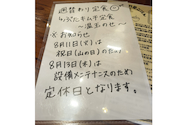 週替わり定食
ぶたキムチ定食
〜温玉のせ〜
※お知らせ
8月11日(火)は
祝日(山の日)のため
8月13日(木)は
設備メンテナンスのため
定休日となります。